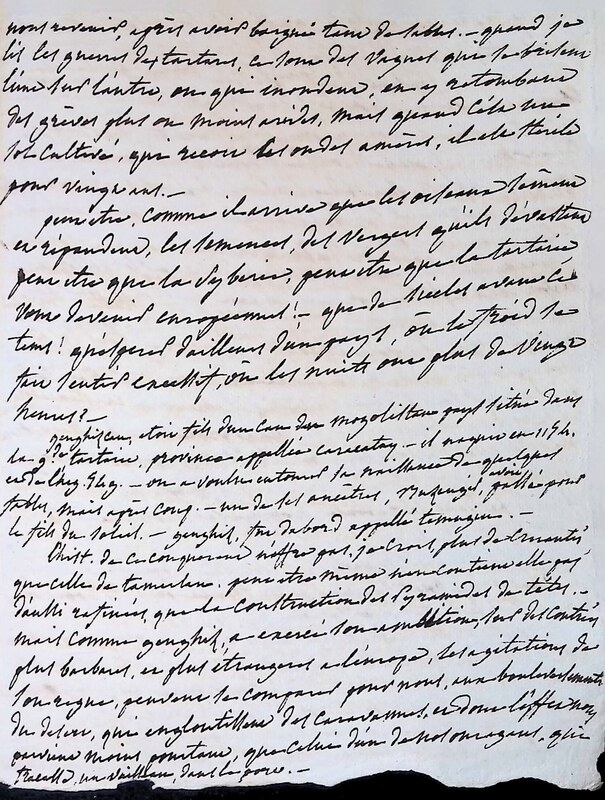 nous revenir, après avoir baigné tant de sables. – quand je
lis les guerres des tartares, ce sont des vagues qui se brisent
l'une sur l'autre, ou qui inondent, en y retombant
des grèves plus ou moins arides, mais quand c'est un
sol cultivé, qui reçoit les ondes amères, il est stérile
pour vingt ans. –
peut etre, comme il arrive que les oiseaux sement
et répandent, les semences, des vergers qu'ils dévastent
peut etre que la syberie, peut etre que la tartarie
vont devenir européennes! – que de siècles avant ce
tems! qu'esperer d'ailleurs d'un pays, où le froid se
fait sentir excessif, où les nuits ont plus de vingt
heures? –
genghiscan, etoit fils d'un can du mogolistan pays situé dans
la gde tartarie, province appellée – il naquit en 1154.
et de l'heg. 549. – on a voulu entourer sa naissance de quelques
fables, mais après coup. – un de ses ancêtres, avoit passé pour
le fils du soleil. – genghis, fut d'abord appellé temugin. –
l'hist. de ce conquerant n'offre pas, je crois, plus de cruautés
que celle de tamerlan. peut etre même n'en contient elle pas
d'aussi rafinées, que la construction des pyramides de têtes. –
mais comme genghis, a exercé son ambition, sur des contrées
plus barbares, et plus étrangeres a l'europe, les agitations de
son regne, peuvent se comparer pour nous, aux bouleversements
du desert, qui engloutissent des caravannes, et dont l'effet nous
parvient moins pourtant, que celui d'un de nos ouragans, qui
fracasse, un vaisseau, dans le port. –